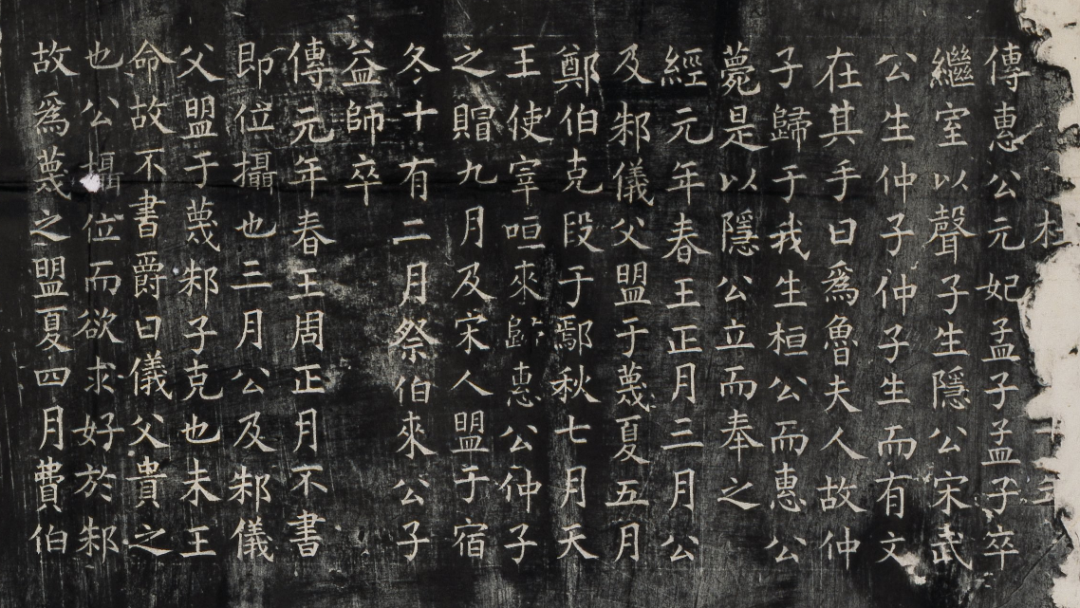 傳惠公元妃孟子孟子卒
繼室以聲子生隱公宋武
公生仲子仲子生而有文
在其手曰爲魯夫人故仲
子歸于我生桓公而惠公
薨是以隱公立而奉之
經元年春王正月三月公
及邾儀父盟于蔑夏五月
鄭伯克段于鄢秋七月天
王使宰咺來歸惠公仲子
之賵九月及宋人盟于宿
冬十有二月祭伯來公子
益師卒
傳元年春王周正月不書
即位攝也三月公及邾儀
父盟于蔑邾子克也未王
命故不書爵曰儀父貴之
也公攝位而欲求好於邾
故爲蔑之盟夏四月費伯